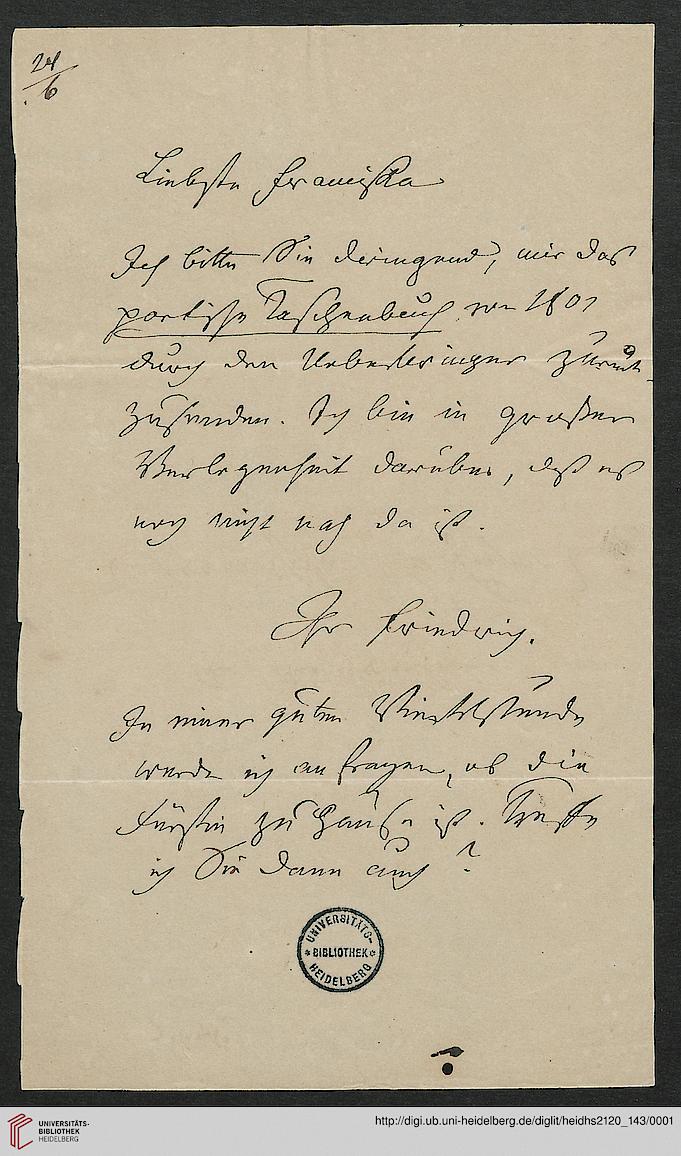 24
6
Liebste Franciska
Ich bitte Sie dringend, mir das
poetische Taschenbuch von 1801
durch den Ueberbringer zurück
zusenden. Ich bin in großer
Verlegenheit darüber, daß es
noch nicht nach da ist.
Ihr Friedrich.
In einer guten Viertelstunde
werde ich anfragen, ob die
Fürstin zu Hause ist. Treffe
ich Sie dann auch?
UNIVERSITÄTS-
* BIBLIOTHEK *
HEIDELBERG
UNIVERSITÄTS-
BIBLIOTHEK
HEIDELBERG
http://digi.ub.uni-heidelberg.de/diglit/heidhs2120_143/0001